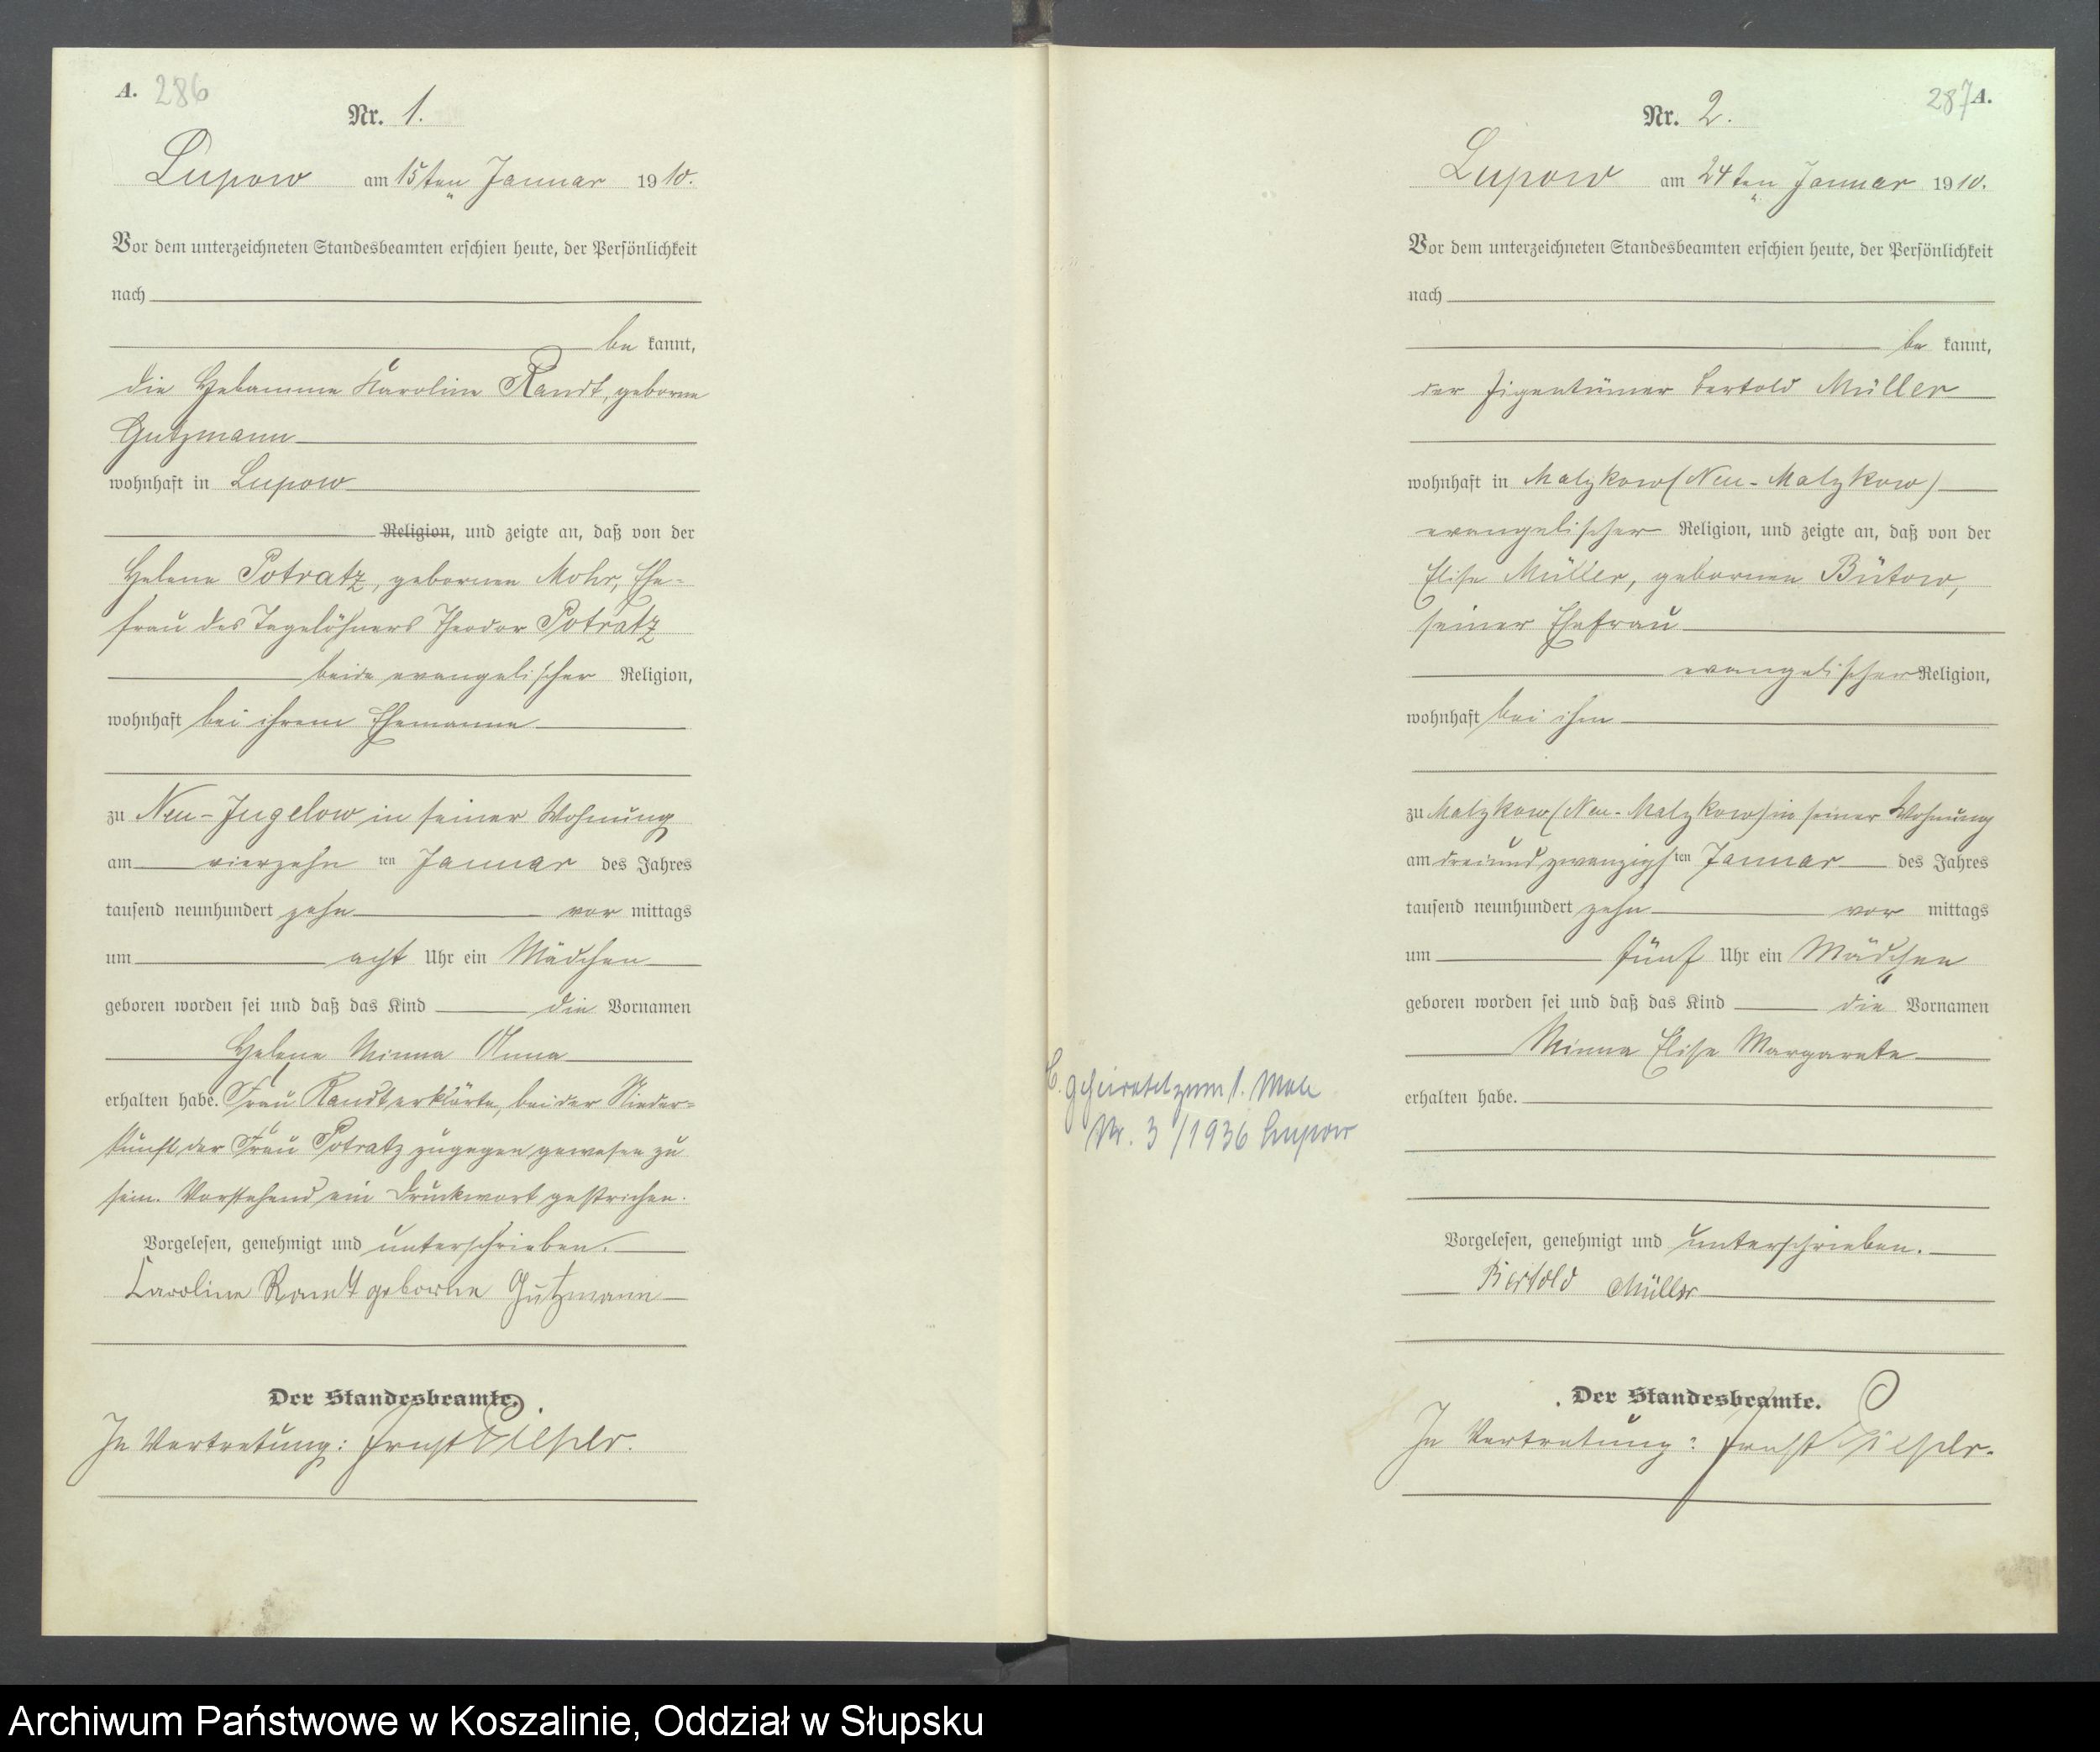 A. 286
Nr. 1.
Lupow am 15ten Januar 1910.
Vor dem unterzeichneten Standesbeamten erschien heute, der Persönlichkeit
nach
be kannt,
die Hebamme Karoline Randt, geborne
Gutzmann
wohnhaft in Lupow
Religion, und zeigte an, daß von der
Helene Potratz, gebornen Mohr, Ehe-
frau des Tagelöhners Theodor Potratz
beide evangelischer Religion,
wohnhaft bei ihrem Ehemanne
zu Neu-Jugelow in seiner Wohnung
am vierzehn ten Januar des Jahres
tausend neunhundert zehn vor mittags
um acht Uhr ein Mädchen
geboren worden sei und daß das Kind die Vornamen
Helene Minna Anna
erhalten habe. Frau Randt erklärte, bei der Nieder-
kunft der Frau Potratz zugegen gewesen zu
sein. Vorstehend ein Druckwort gestrichen.
Vorgelesen, genehmigt und unterschrieben.
Caroline Randt geborne Gutzmann
Der Standesbeamte.
In Vertretung: Ernst
287 A.
Nr. 2.
Lupow am 24ten Januar 1910.
Vor dem unterzeichneten Standesbeamten erschien heute, der Persönlichkeit
nach
be kannt,
der Eigentümer Bertold Müller
wohnhaft in Malzkow (Neu-Malzkow)
evangelischer Religion, und zeigte an, daß von der
Elise Müller, gebornen Bütow,
seiner Ehefrau
evangelischer Religion,
wohnhaft bei ihm
zu Malzkow (Neu-Malzkow) in seiner Wohnung
am dreiundzwanzigsten Januar des Jahres
tausend neunhundert zehn vor mittags
um fünf Uhr ein Mädchen
geboren worden sei und daß das Kind die Vornamen
Minna Elise Margarete
erhalten habe.
Vorgelesen, genehmigt und unterschrieben.
Bertold Müller
Der Standesbeamte.
In Vertretung: Ernst
geheiratet zum 1. Male
Nr. 3/1936 Lupow
Archiwum Państwowe w Koszalinie, Oddział w Słupsku